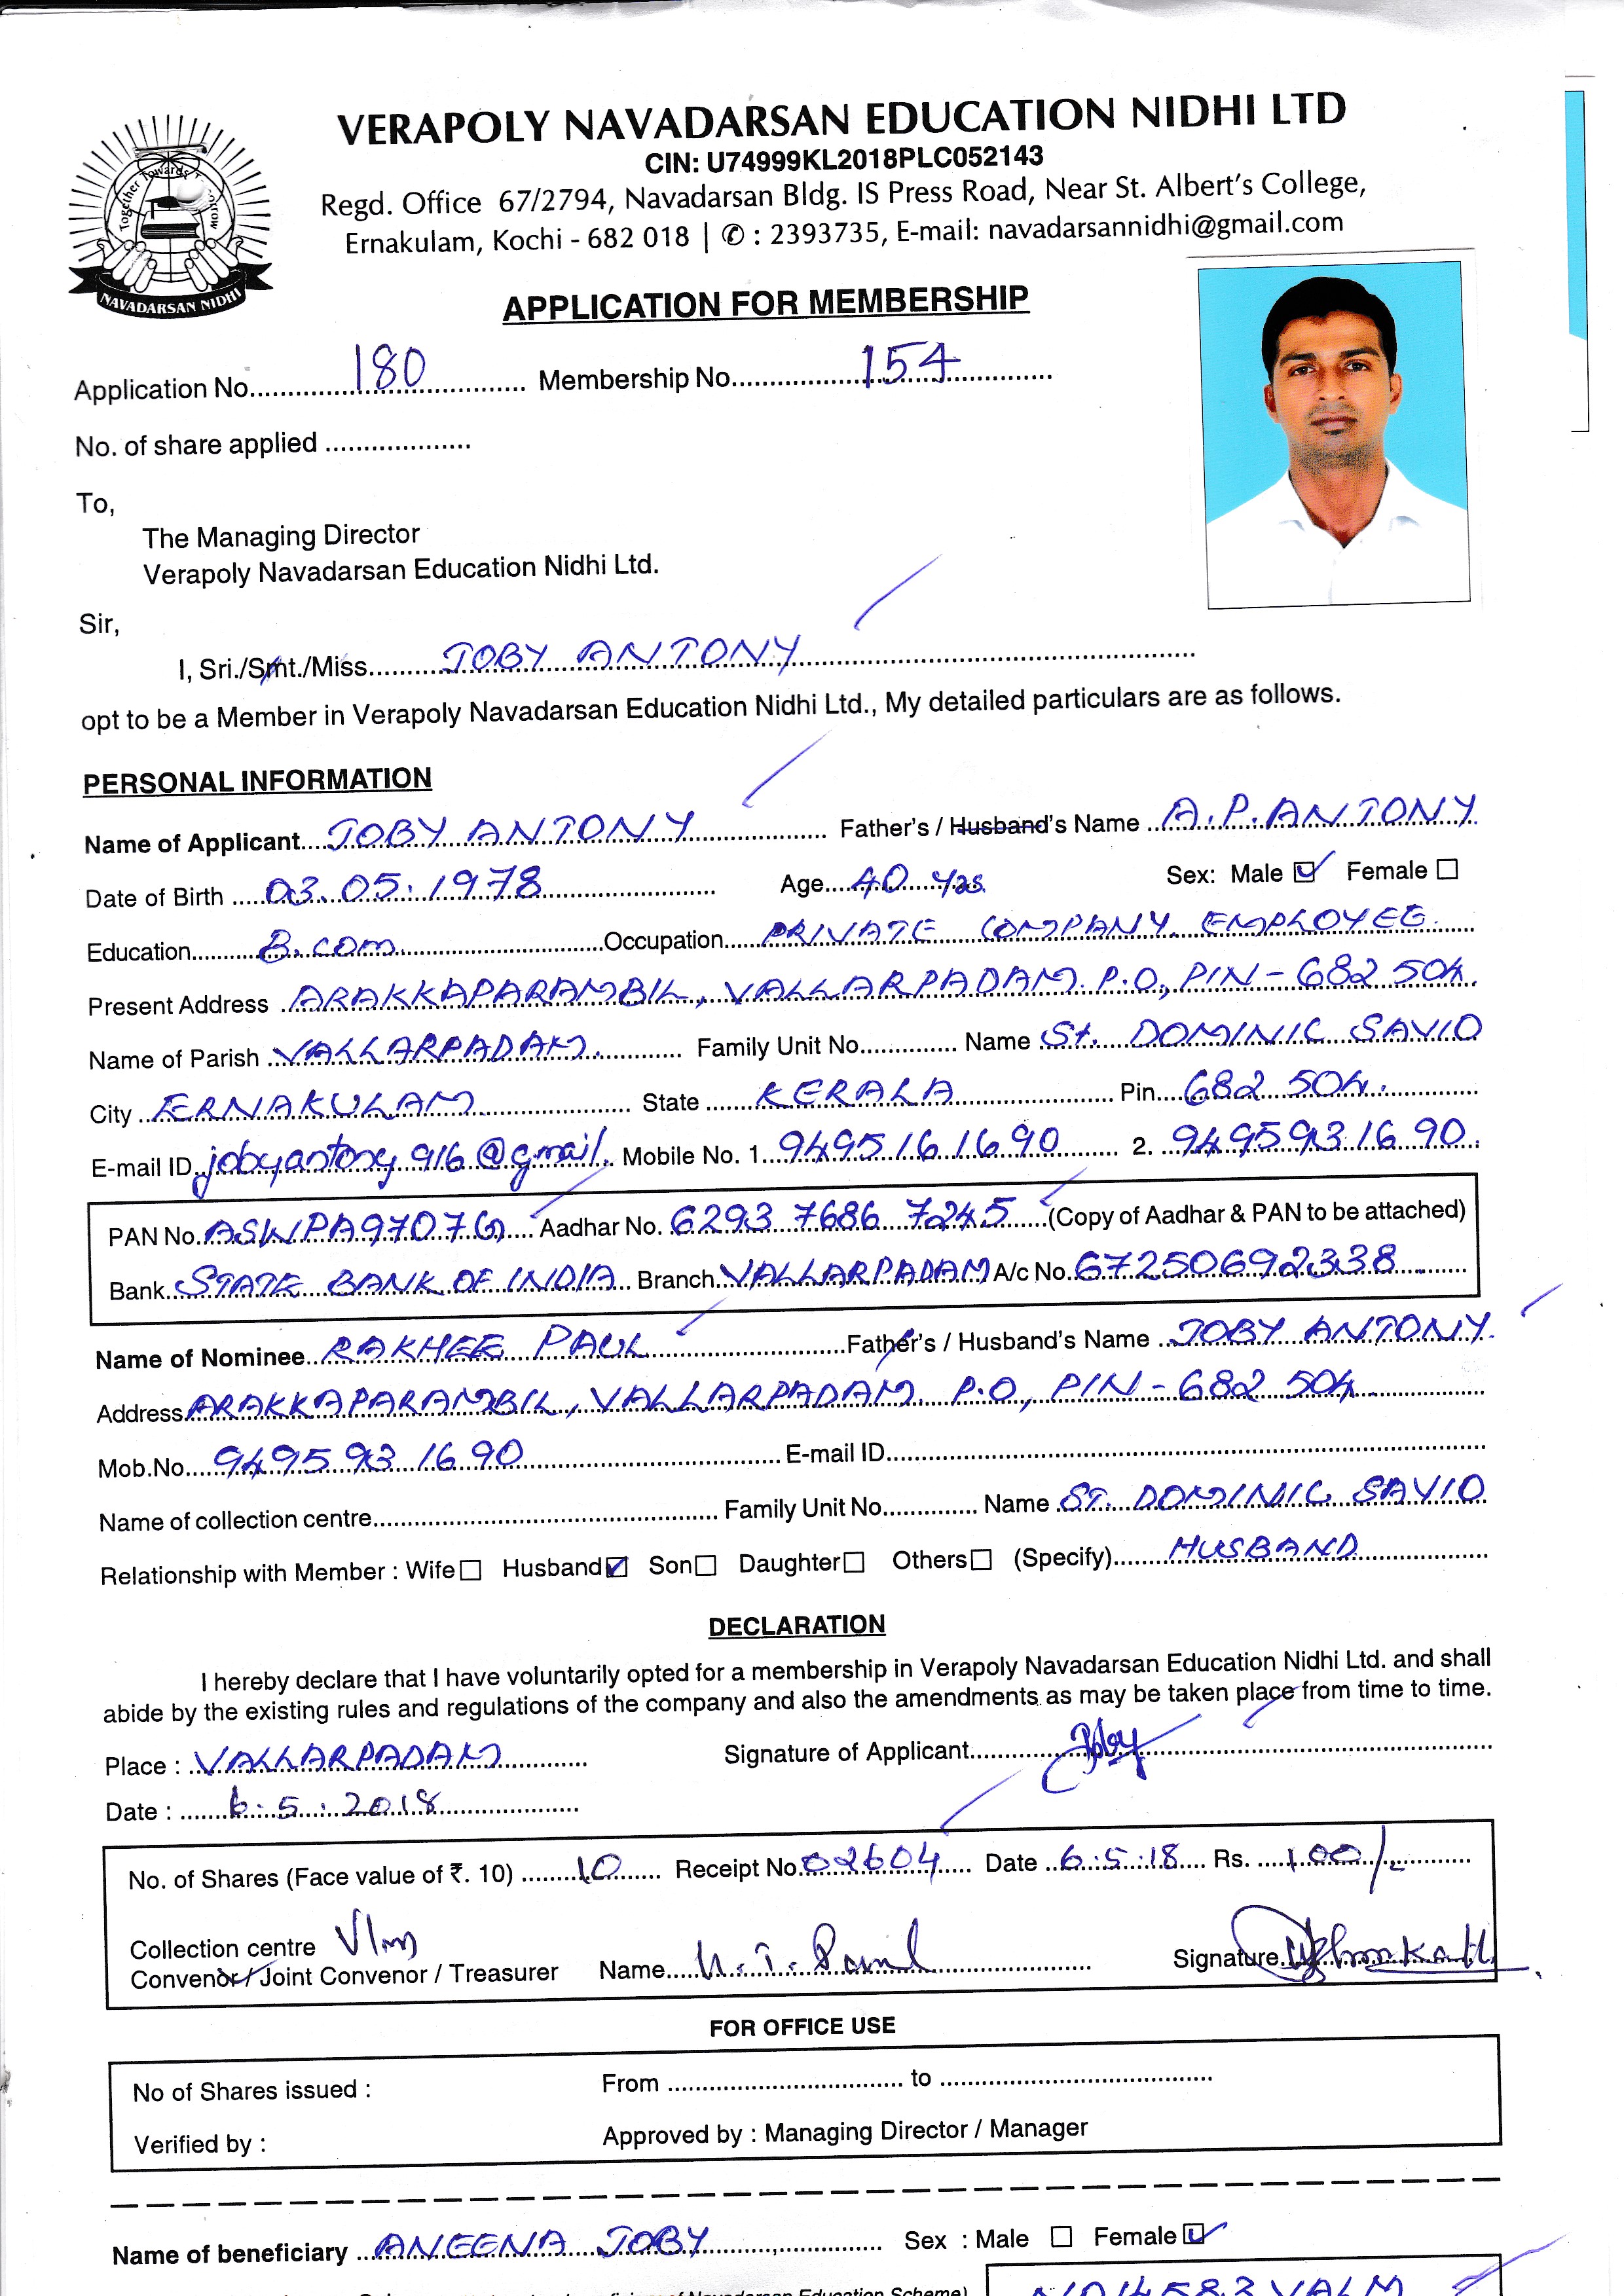 VERAPOLY NAVADARSAN EDUCATION NIDHI LTD
CIN: U74999KL2018PLC052143
Regd. Office 67/2794, Navadarsan Bldg. IS Press Road, Near St. Albert's College,
Ernakulam, Kochi - 682 018 | ✆ : 2393735, E-mail: navadarsannidhi@gmail.com
Together Towards
NAVADARSAN NIDHI
APPLICATION FOR MEMBERSHIP
Application No. 180 Membership No. 154
No. of share applied
To,
The Managing Director
Verapoly Navadarsan Education Nidhi Ltd.
Sir,
I, Sri./Smt./Miss. JOBY ANTONY
opt to be a Member in Verapoly Navadarsan Education Nidhi Ltd., My detailed particulars are as follows.
PERSONAL INFORMATION
Name of Applicant JOBY ANTONY Father's / Husband's Name A.P. ANTONY
Date of Birth 03.05.1978 Age 40 yrs Sex: Male ☑ Female ☐
Education B.com Occupation PRIVATE COMPANY EMPLOYEE
Present Address ARAKKAPARAMBIL, VALLARPADAM P.O, PIN - 682 504.
Name of Parish VALLARPADAM. Family Unit No. Name St. DOMINIC SAVIO
City ERNAKULAM State KERALA Pin 682 504.
E-mail ID jobyantony916@gmail. Mobile No. 1. 9495 16 16 90 2. 9495 93 16 90
PAN No. ASWPA9707G Aadhar No. 6293 7686 7245 (Copy of Aadhar & PAN to be attached)
Bank STATE BANK OF INDIA Branch VALLARPADAM A/c No. 67250692338
Name of Nominee RAKHEE PAUL Father's / Husband's Name JOBY ANTONY.
Address ARAKKAPARAMBIL, VALLARPADAM P.O, PIN - 682 504
Mob.No. 9495 93 16 90 E-mail ID
Name of collection centre Family Unit No. Name ST. DOMINIC SAVIO
Relationship with Member : Wife ☐ Husband ☑ Son ☐ Daughter ☐ Others ☐ (Specify) HUSBAND
DECLARATION
I hereby declare that I have voluntarily opted for a membership in Verapoly Navadarsan Education Nidhi Ltd. and shall
abide by the existing rules and regulations of the company and also the amendments as may be taken place from time to time.
Place : VALLARPADAM Signature of Applicant Joby
Date : 6.5.2018
No. of Shares (Face value of ₹. 10) 10 Receipt No. 02604 Date 6.5.18 Rs. 100/-
Collection centre Vlm
Convenor / Joint Convenor / Treasurer Name Signature
FOR OFFICE USE
No of Shares issued : From to
Verified by : Approved by : Managing Director / Manager
Name of beneficiary ANEENA JOBY Sex : Male ☐ Female ☑